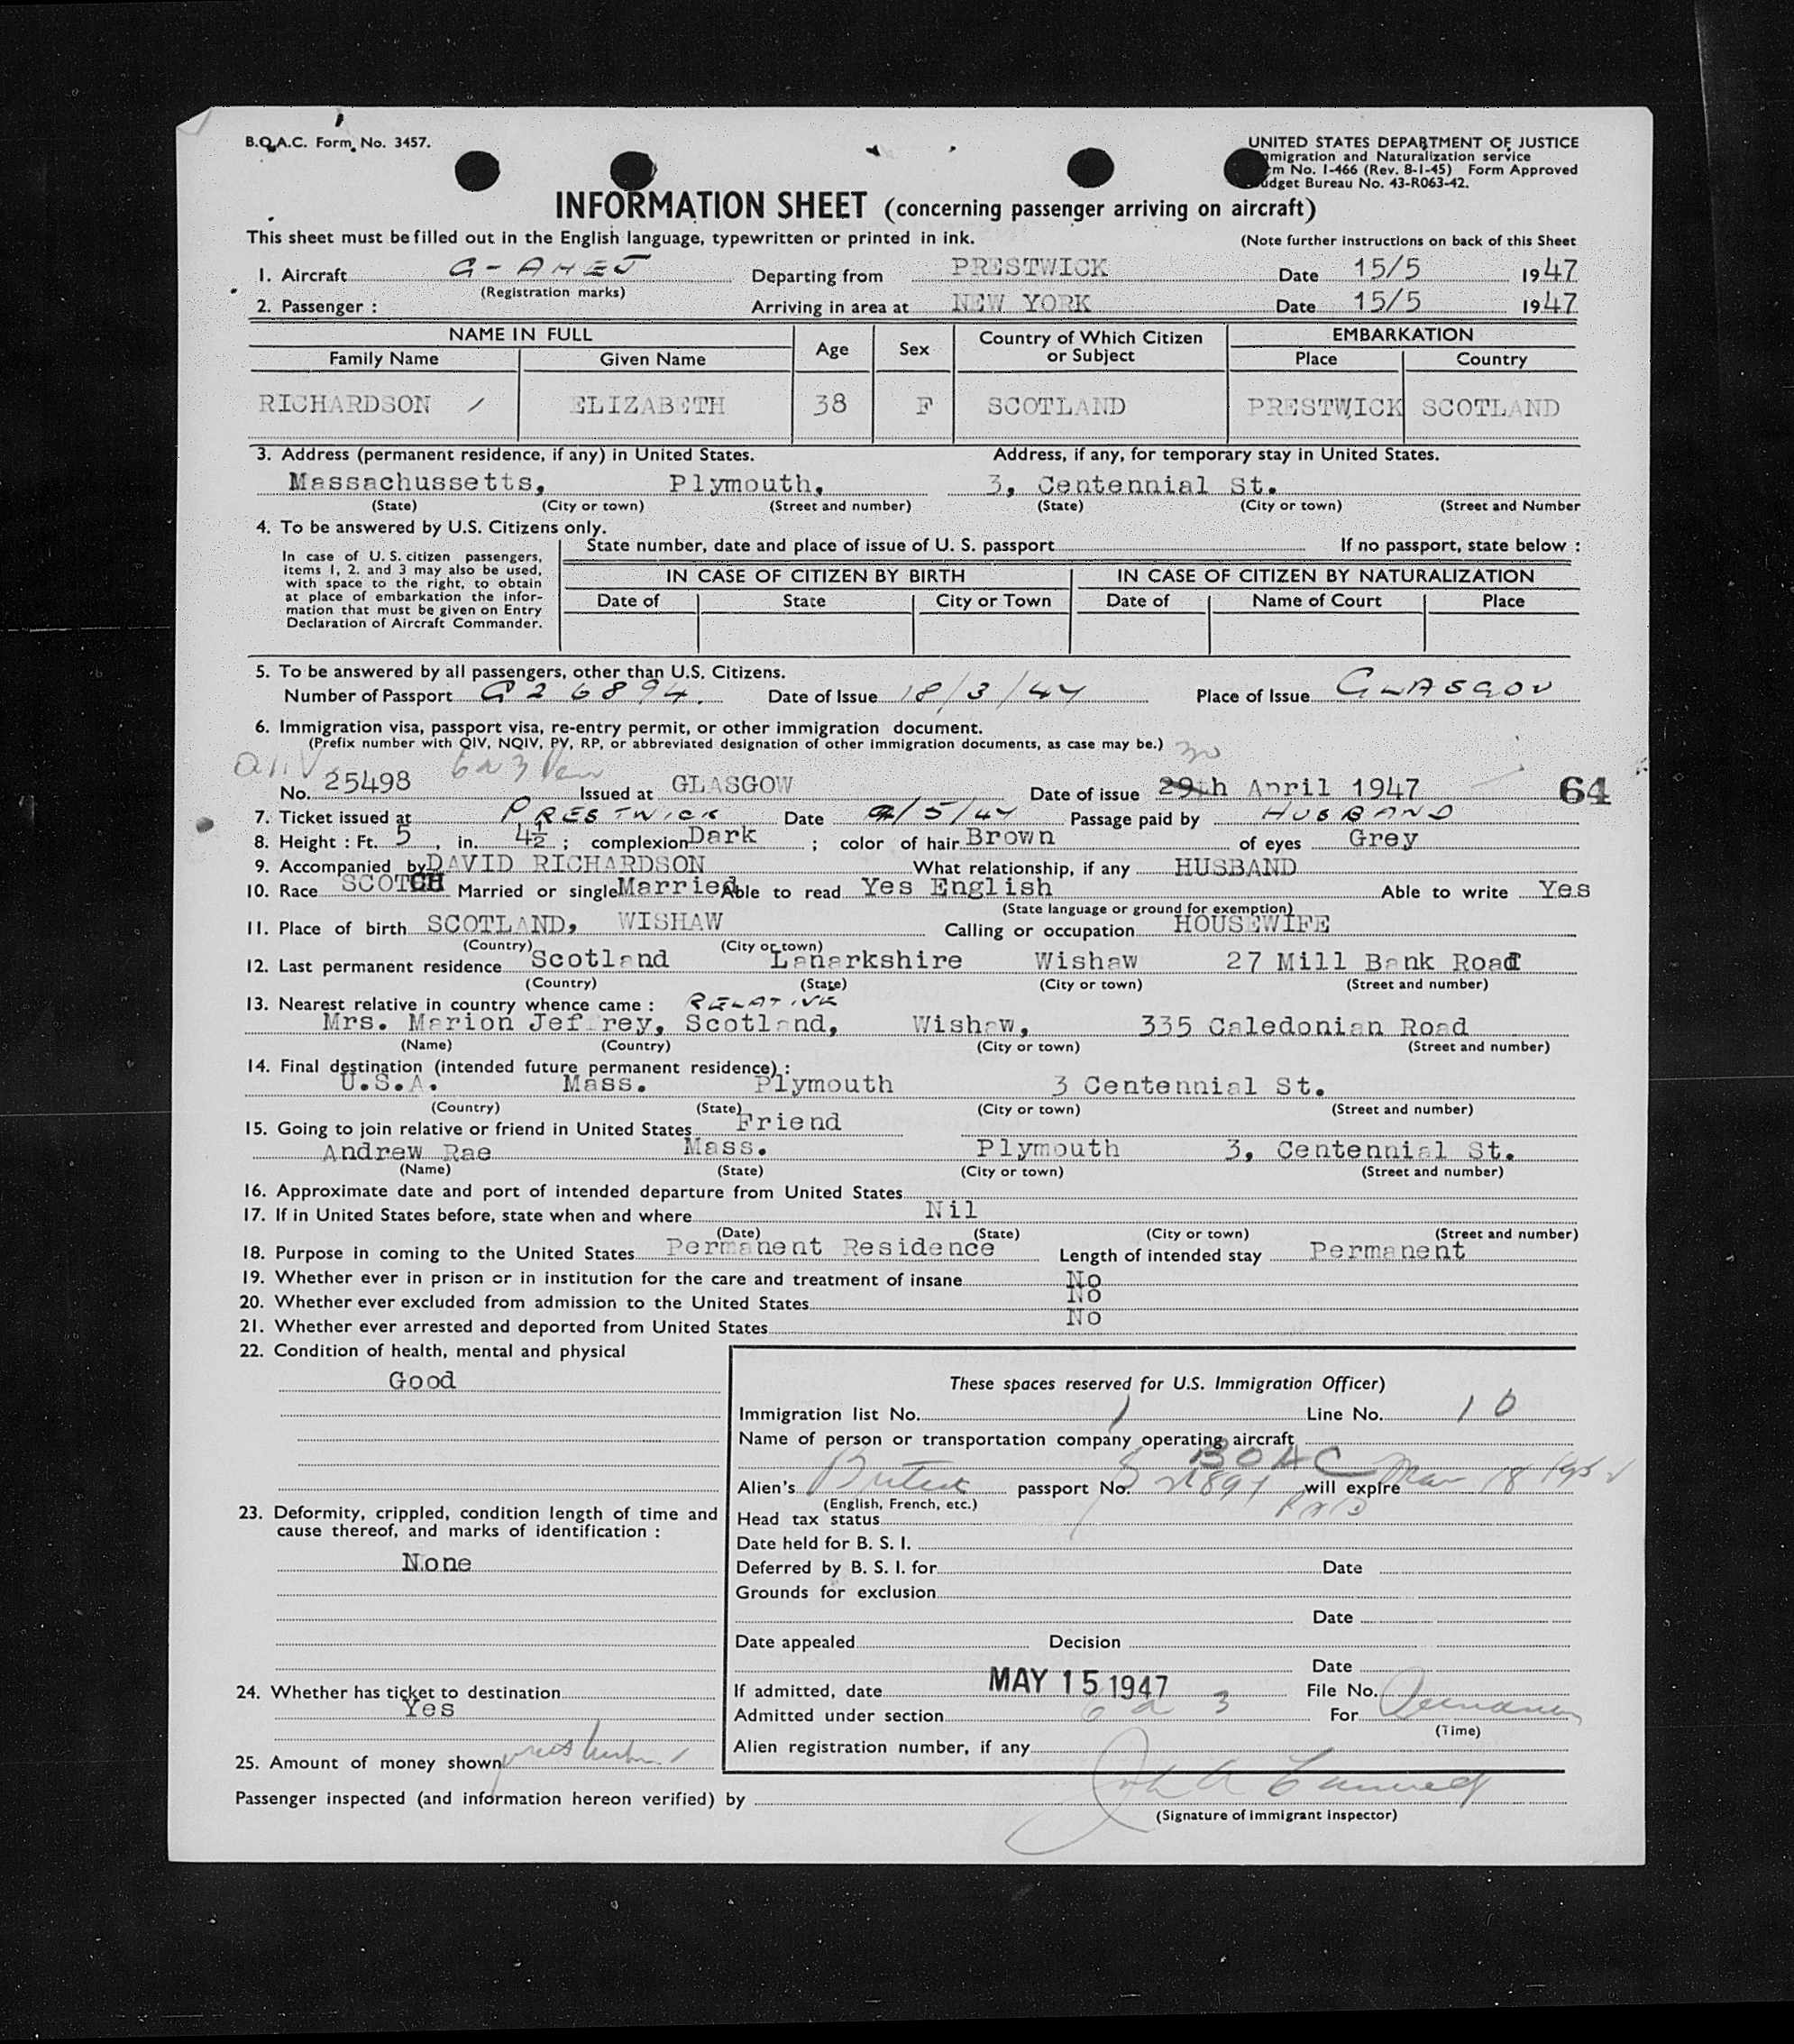 B.O.A.C. Form No. 3457.
UNITED STATES DEPARTMENT OF JUSTICE
migration and Naturalization service
m No. I-466 (Rev. 8-1-45) Form Approved
dget Bureau No. 43-R063-42.
INFORMATION SHEET (concerning passenger arriving on aircraft)
This sheet must be filled out in the English language, typewritten or printed in ink. (Note further instructions on back of this Sheet
1. Aircraft G-AHEJ Departing from PRESTWICK Date 15/5 1947
(Registration marks)
2. Passenger : Arriving in area at NEW YORK Date 15/5 1947
NAME IN FULL Age Sex Country of Which Citizen or Subject EMBARKATION
Family Name Given Name Place Country
RICHARDSON / ELIZABETH 38 F SCOTLAND PRESTWICK SCOTLAND
3. Address (permanent residence, if any) in United States. Address, if any, for temporary stay in United States.
Massachussetts, Plymouth, 3, Centennial St.
(State) (City or town) (Street and number) (State) (City or town) (Street and Number
4. To be answered by U.S. Citizens only.
In case of U.S. citizen passengers, items 1, 2, and 3 may also be used, with space to the right, to obtain at place of embarkation the information that must be given on Entry Declaration of Aircraft Commander.
State number, date and place of issue of U. S. passport If no passport, state below :
IN CASE OF CITIZEN BY BIRTH IN CASE OF CITIZEN BY NATURALIZATION
Date of State City or Town Date of Name of Court Place
5. To be answered by all passengers, other than U.S. Citizens.
Number of Passport G26894. Date of Issue 18/3/47 Place of Issue GLASGOW
6. Immigration visa, passport visa, re-entry permit, or other immigration document.
(Prefix number with QIV, NQIV, PV, RP, or abbreviated designation of other immigration documents, as case may be.) 30
QIV 6a3 Per
No. 25498 Issued at GLASGOW Date of issue 29th April 1947 64
7. Ticket issued at PRESTWICK Date /5/47 Passage paid by HUSBAND
8. Height : Ft. 5, in. 4½ ; complexion Dark ; color of hair Brown of eyes Grey
9. Accompanied by DAVID RICHARDSON What relationship, if any HUSBAND
10. Race SCOTCH Married or single Married Able to read Yes English Able to write Yes
(State language or ground for exemption)
11. Place of birth SCOTLAND, WISHAW Calling or occupation HOUSEWIFE
(Country) (City or town)
12. Last permanent residence Scotland Lanarkshire Wishaw 27 Mill Bank Road
(Country) (State) (City or town) (Street and number)
13. Nearest relative in country whence came : RELATIVE
Mrs. Marion Jef rey, Scotland, Wishaw, 335 Caledonian Road
(Name) (Country) (City or town) (Street and number)
14. Final destination (intended future permanent residence) :
U.S.A. Mass. Plymouth 3 Centennial St.
(Country) (State) (City or town) (Street and number)
15. Going to join relative or friend in United States Friend
Andrew Rae Mass. Plymouth 3, Centennial St.
(Name) (State) (City or town) (Street and number)
16. Approximate date and port of intended departure from United States
17. If in United States before, state when and where Nil
(Date) (State) (City or town) (Street and number)
18. Purpose in coming to the United States Permanent Residence Length of intended stay Permanent
19. Whether ever in prison or in institution for the care and treatment of insane No
20. Whether ever excluded from admission to the United States No
21. Whether ever arrested and deported from United States No
22. Condition of health, mental and physical
Good
23. Deformity, crippled, condition length of time and cause thereof, and marks of identification :
None
24. Whether has ticket to destination
Yes
25. Amount of money shown
These spaces reserved for U.S. Immigration Officer)
Immigration list No. 1 Line No. 10
Name of person or transportation company operating aircraft
BOAC
Alien's British passport No. will expire Mar 18 1952
(English, French, etc.)
Head tax status PAID
Date held for B. S. I.
Deferred by B. S. I. for Date
Grounds for exclusion
Date
Date appealed Decision
Date
If admitted, date MAY 15 1947 File No.
Admitted under section 6 a 3 For
(Time)
Alien registration number, if any
Passenger inspected (and information hereon verified) by
(Signature of Immigrant Inspector)